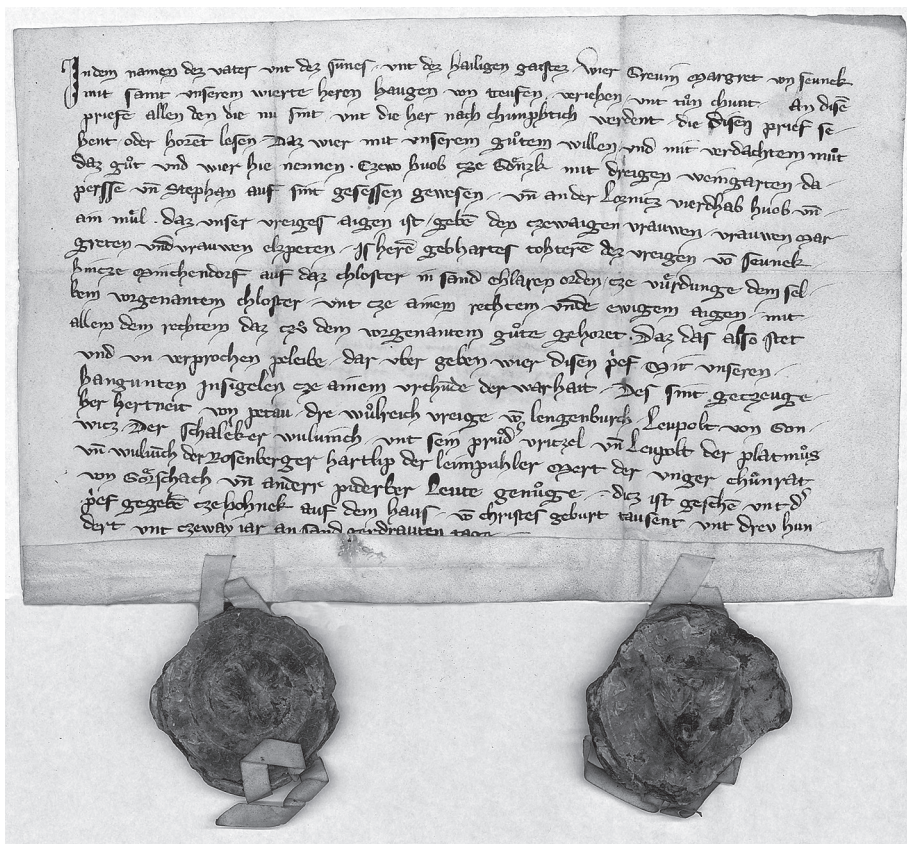 Indem namen dez vater vnt dez sunes · vnt dez hailigen gaistez · Wier Greuin Margret von seunek
mit samt vnserem wierte heren haugen von teufen · veriehen · vnt tuͦn chunt An disē
priefe allen den die nu sint · vnt die her nach chunphtich werdent die disen prief se-
hent oder horent lesen · Daz wier mit vnserem guͦtem willen vnd mit verdachtem muͦt
daz guͦt vnd wier hie nennen · Czwo huob cze mit dreigen weingarten da
persse vn̄ Stephan auf sint gesessen gewesen · vn̄ an der Loznitz vierdhalb huob vn̄
ain muͦl · daz vnser vreiges aigen ist · gebē den czwaigen vrauwen · vrauwen Mar-
greten vnd vrauwen elzpeten · herē gebhartes tohterē dez vreigen vō seunek
hincze Minchendorf auf daz chloster in sand chlaren orden · cze dem sel-
bem vorgenantem chloster · vnt cze ainem rechtem vnde ewigem aigen · mit
allem dem rechtem daz czuͦ dem vorgenantem guͦte gehoret · Daz das also stet
vnd vn verprochen peleibe · dar vber geben wier disen pͥef Mit vnseren
hangunten Insigelen cze ainem vrchūde der warhait · Des sint getzeuge
her hertneit von petau · dre wuͦlreich vreige vō lengenburch · Leupolt von Gon-
wicz · Der vnt sein pruͦdˀ vritzel vn̄ Leupolt der
vn̄ der Rosenberger hartlip der Mert der vnger chuͦnrat
von vn̄ andere piderber Leute genuͦge · diz ist geschen vnt dˀ
pͥef gegebē cze hohnek auf dem haus · vō christes geburt tausent vnt drev hun-
dert vnt czway iar an sand gerdrauten tage